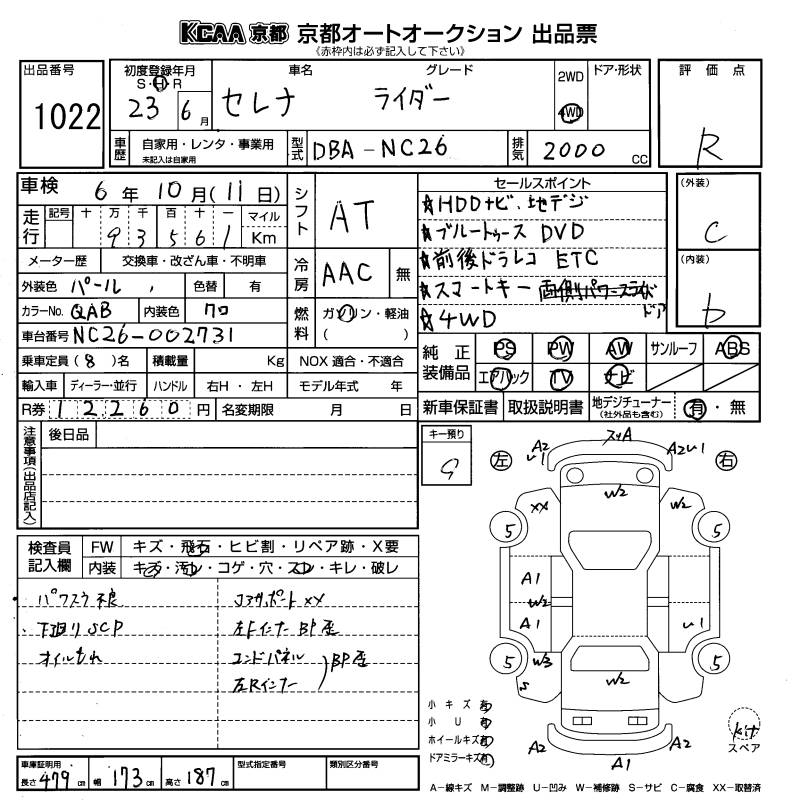 KCAA 京都 京都オートオークション 出品票
《赤枠内は必ず記入して下さい》
出品番号
1022
初度登録年月
S・H・R
23 6月
車名
セレナ
グレード
ライダー
2WD
4WD
ドア・形状
評価点
R
車歴
自家用・レンタ・事業用
未記入は自家用
型式
DBA-NC26
排気
2000 CC
車検 6年 10月(11日)
走行
記号 十 万 千 百 十 一 マイル
9 3 5 6 1 Km
シフト
AT
メーター歴 交換車・改ざん車・不明車
外装色 パール 色替 有
カラーNo. QAB 内装色 クロ
冷房
AAC 無
燃料
ガソリン・軽油
( )
車台番号 NC26-002731
乗車定員 (8)名 積載量 Kg NOX 適合・不適合
輸入車 ディーラー・並行 ハンドル 右H・左H モデル年式 年
R券 12260 円 名変期限 月 日
セールスポイント
★HDDナビ.地デジ
★ブルートゥース DVD
★前後ドラレコ ETC
★スマートキー 両側パワースライド
ドア
★4WD
(外装)
C
(内装)
D
純正装備品
PS PW AW サンルーフ ABS
エアバック TV ナビ
新車保証書 取扱説明書 地デジチューナー
(社外品も含む)
有・無
注意事項(出品店記入)
後日品
キー預り
9
左
右
検査員記入欄
FW キズ・飛石・ヒビ割・リペア跡・X要
内装 キズ・汚レ・コゲ・穴・スレ・キレ・破レ
パワスラ不良
下廻り SCP
オイルもれ
コアサポート XX
左Fインナー BP歪
エンドパネル
左Rインナー
BP歪
A2
U1
スリA
A2 U1
W2
XX
W2
5
5
A1
W2
A1
U1
5
W3
S
W2
5
A2
A1
A2
小キズ有
小U有
ホイールキズ有
ドアミラーキズ有
kit
スペア
車庫証明用
長さ 479 cm 幅 173 cm 高さ 187 cm
型式指定番号
類別区分番号
A−線キズ M−調整跡 U−凹み W−補修跡 S−サビ C−腐食 XX−取替済